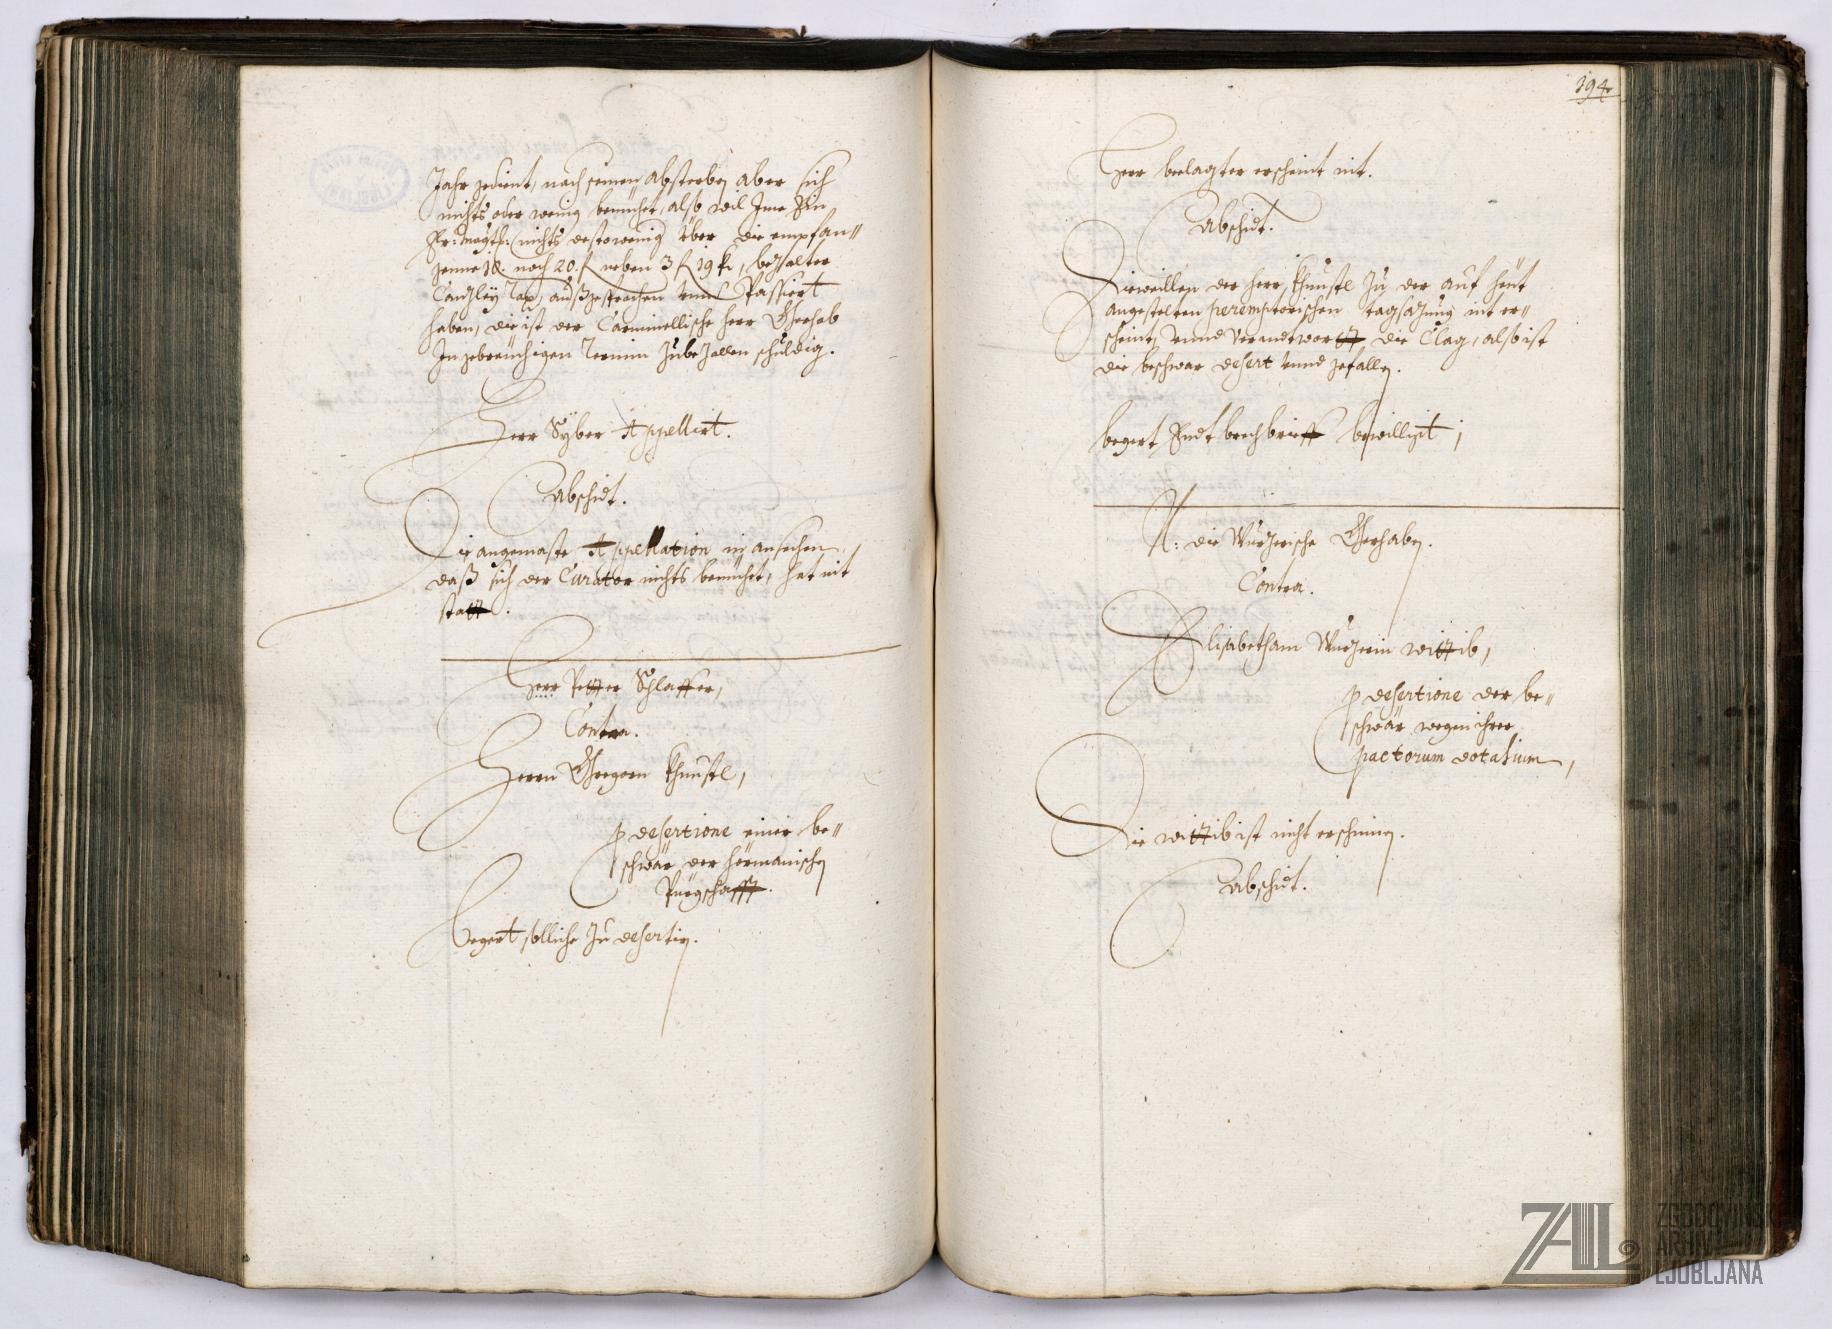 Jahr gedient, nach seinen absterben aber sich
nichts oder wenig bemühet, also wil Jme Ein
Er: Magtl: nichts destowenig über die empfan=
genne 18. noch 20. f neben 3 f 19 kr, bezalter
Canzley Tax, außgesprochen unnd Passiert
haben, die ist der Carminellische herr Gerhab
In gebreüchigen Termin zubezallen schuldig.
Herr Syber Appellirt.
Abschidt.
Die angemaste Appellation in ansechen
daß sich der Curator nichts bemühet, hat nit
statt.
Herr Petter Schlaffer,
Contra.
Herrn Gregorn Khunstl,
p desertione einer be=
schwär der hörmanischen
Pürgschafft.
Begert solliche zu desertirn.
194
Herr beclagter erscheint nit.
Abschidt.
Dieweillen der herr Khunstl zu der auf heut
angestelten peremptorischen tagsazung nit er=
scheint, unnd verandtwortt die Clag, also ist
die beschwär desert unnd gefallen.
begert Endtbrechbrieff bewilligt,
N: die Wurzerische Gerhaben.
Contra.
Elisabetham Wurzerin wittib,
p desertione der be=
schwär wegen ihrer
pactorum dotalium,
Die wittib ist nicht erschinen.
Abschidt.
ZAL
ZGODOVINSKI
ARHIV
LJUBLJANA